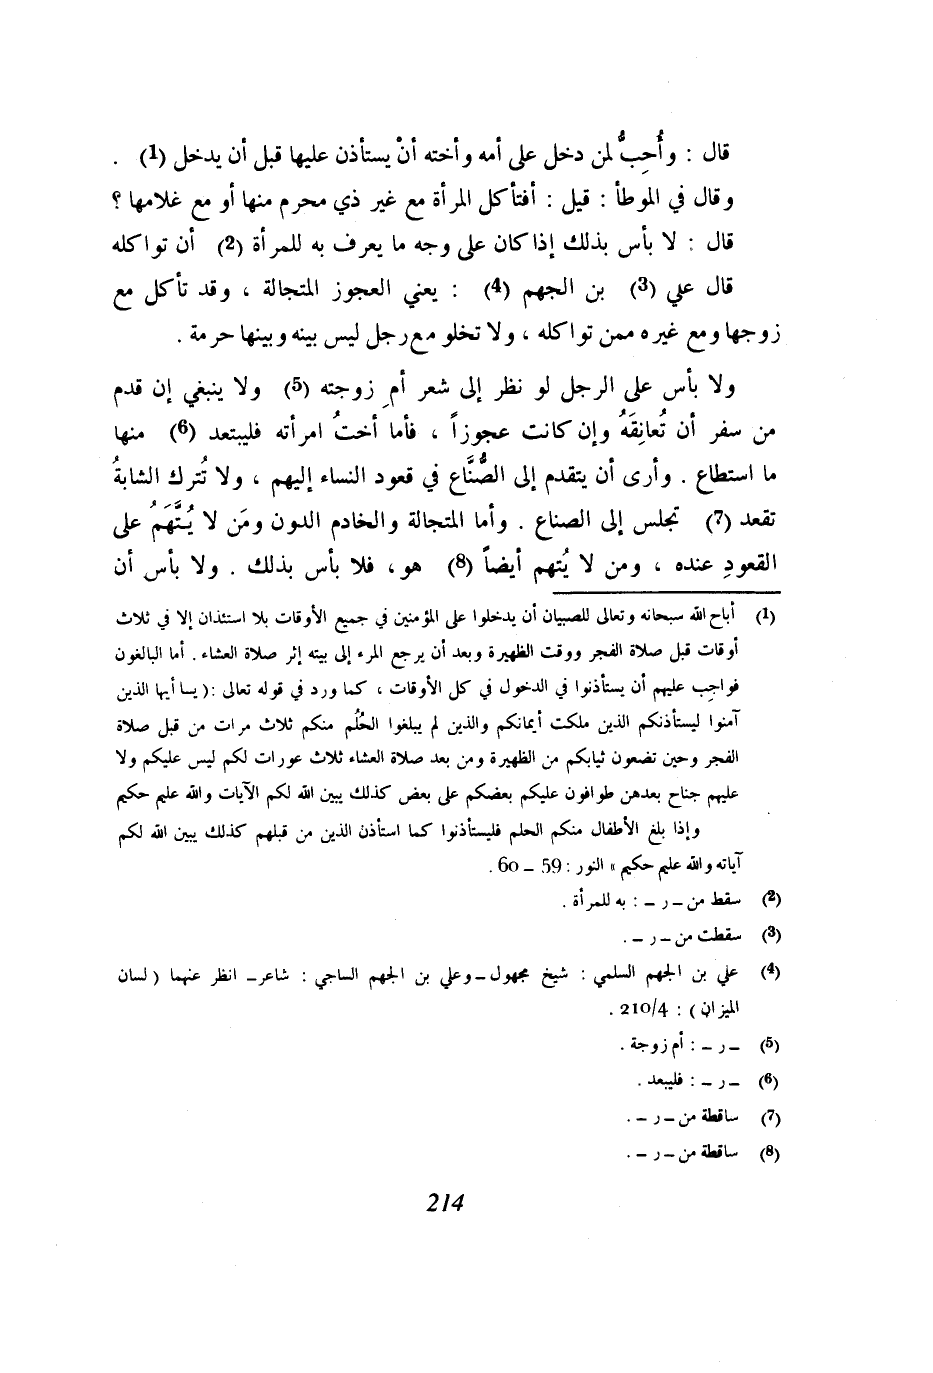 قال : وأُحِبُّ لمن دخل على أمه وأخته أنْ يستأذن عليها قبل أن يدخل (1) .
وقال في الموطأ : قيل : أفتأكل المرأة مع غير ذي محرم منها أو مع غلامها ؟
قال : لا بأس بذلك إذا كان على وجه ما يعرف به للمرأة (2) أن تواكله
قال علي (3) بن الجهم (4) : يعني العجوز المتجالة ، وقد تأكل مع
زوجها ومع غيره ممن تواكله ، ولا تخلو مع رجل ليس بينه وبينها حرمة .
ولا بأس على الرجل لو نظر إلى شعر أمِ زوجته (5) ولا ينبغي إن قدم
من سفر أن تُعانِقَهُ وإن كانت عجوزاً ، فأما أختُ امرأته فليبتعد (6) منها
ما استطاع . وأرى أن يتقدم إلى الصُّنَّاع في قعود النساء إليهم ، ولا تُترك الشابةُ
تقعد (7) تجلس إلى الصناع . وأما المتجالة والخادم الدون ومَن لا يُتَّهَمُ على
القعودِ عنده ، ومن لا يُتهم أيضاً (8) هو ، فلا بأس بذلك . ولا بأس أن
(1) أباح الله سبحانه وتعالى للصبيان أن يدخلوا على المؤمنين في جميع الأوقات بلا استئذان إلا في ثلاث
أوقات قبل صلاة الفجر ووقت الظهيرة وبعد أن يرجع المرء إلى بيته إثر صلاة العشاء . أما البالغون
فواجب عليهم أن يستأذنوا في الدخول في كل الأوقات ، كما ورد في قوله تعالى :( يا أيها الذين
آمنوا ليستأذنكم الذين ملكت أيمانكم والذين لم يبلغوا الحُلُم منكم ثلاث مرات من قبل صلاة
الفجر وحين تضعون ثيابكم من الظهيرة ومن بعد صلاة العشاء ثلاث عورات لكم ليس عليكم ولا
عليهم جناح بعدهن طوافون عليكم بعضكم على بعض كذلك يبين الله لكم الآيات والله عليم حكيم
وإذا بلغ الأطفال منكم الحلم فليستأذنوا كما استأذن الذين من قبلهم كذلك يبين الله لكم
آياته والله عليم حكيم » النور : 59 – 60 .
(2) سقط من – ر – : به للمرأة .
(3) سقطت من – ر – .
(4) علي بن الجهم السلمي : شيخ مجهول – وعلي بن الجهم الساجي : شاعر – انظر عنهما ( لسان
الميزان ) : 210/4 .
(5) – ر – : أم زوجة .
(6) – ر – : فليبعد .
(7) ساقطة من – ر – .
(8) ساقطة من – ر – .
214